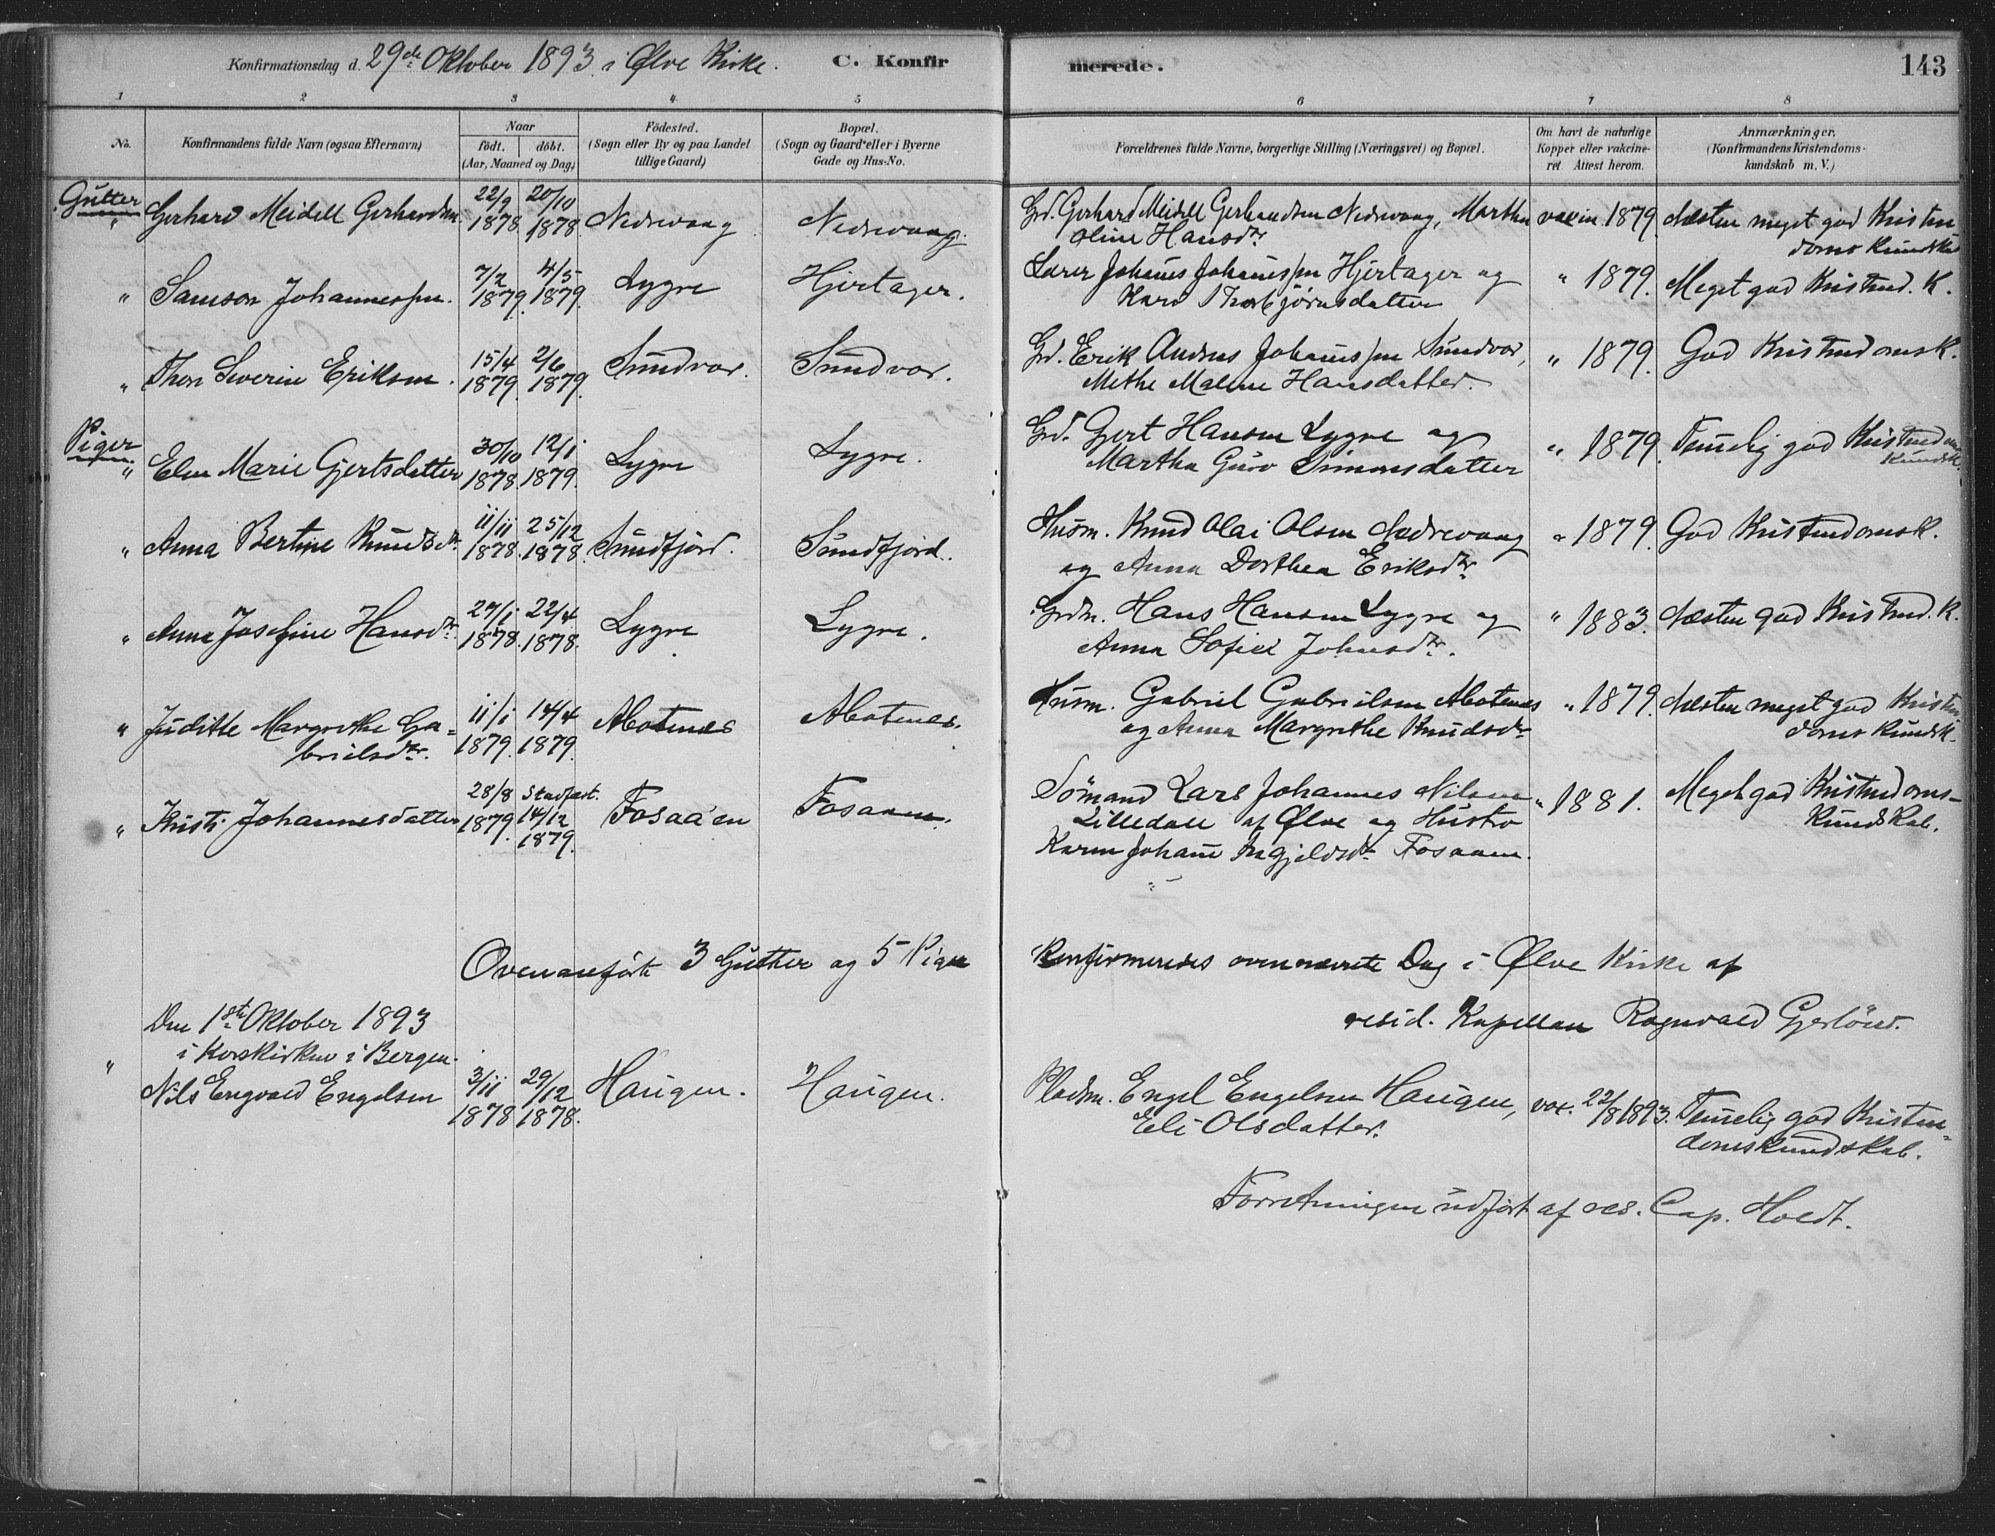 Konfirmationsdag d. 29de Oktober 1893 i Ølve Kirke. C. Konfir merede. 143
1 2 3 4 5 6 7 8
No. Konfirmandens fulde Navn (ogsaa Efternavn) Naar födt. döbt. (Aar, Maaned og Dag) Födested. (Sogn eller By og paa Landet tillige Gaard) Bopæl. (Sogn og Gaard eller i Byerne Gade og Hus-No. Forældrenes fulde Navne, borgerlige Stilling (Næringsvei) og Bopæl. Om havt de naturlige Kopper eller vakcineret. Attest herom. Anmærkninger. (Konfirmandens Kristendomskundskab m. V.)
Gutter
" Gerhard Meidell Gerhardsen 22/9 1878 20/10 1878 Nedrevaag Nedrevaag. Grd. Gerhard Meidell Gerhardsen Nedrevaag, Martha vaccin 1879. Næsten meget god Kristen
Oline Hansdtr. doms Kundsk
" Samson Johannessen. 7/2 1879. 4/5 1879. Lygre Hjertager. Lærer Johannes Johannessen Hjertager og " 1879. Meget god Kristend. K.
Kari Thorbjörnsdatter
" Thor Severin Eriksen. 15/4 1879. 2/6 1879. Sundvor. Sundvor. Grd. Erik Andreas Johannessen Sundvor, " 1879. God Kristendomsk.
Methe Malene Hansdatter.
Piger
" Elen Marie Gjertsdatter 30/10 1878. 12/1 1879. Lygre Lygre. Grd. Gjert Hansen Lygre og " 1879. Temelig god Kristendoms
Martha Guro Simonsdatter Kundsk.
" Anna Bertine Knudsdtr. 11/11 1878. 25/12 1878. Sundfjord. Sundfjord. Husm. Knud Olai Olsen Nedrevaag " 1879. God Kristendomsk.
og Anna Dorthea Eriksdtr.
" Anna Josefine Hansdtr. 27/1 1878. 22/4 1878. Lygre Lygre. Grdm. Hans Hansen Lygre og " 1883. Næsten god Kristend. K.
Anna Sofie Johnsdtr.
" Juditte Margrethe Ga- 11/1 1879. 14/4 1879. Abotenes Abotenes. Husm. Gabriel Gabrielsen Abotenes " 1879. Næsten meget god Kristen
brielsdtr. og Anna Margrethe Knudsdtr. doms Kundsk.
" Kristi Johannesdatter 28/8 1879. Stadfæst. 14/12 1879. Fosaa'en Fosaaen. Sömand Lars Johannes Nilsen " 1881. Meget god Kristendoms-
Lilledale af Ølve og Hustro Kundskab.
Karen Johanne Fosaaen.
Ovenanførte 3 Gutter og 5 Piger Konfirmeredes ovennævnte Dag i Ølve Kirke af
resid. Kapellan Ragnvald Gjerlöw.
Den 1ste Oktober 1893
i Korskirken i Bergen.
" Nils Engvald Engelsen 3/11 1878 29/12 1878. Haugen. Haugen. Pladsm. Engel Engelsen Haugen, vac. 22/8 1893. Temelig god Kristen-
Eli Olsdatter. domskundskab.
Forretningen udført af res. Cap. Holdt.